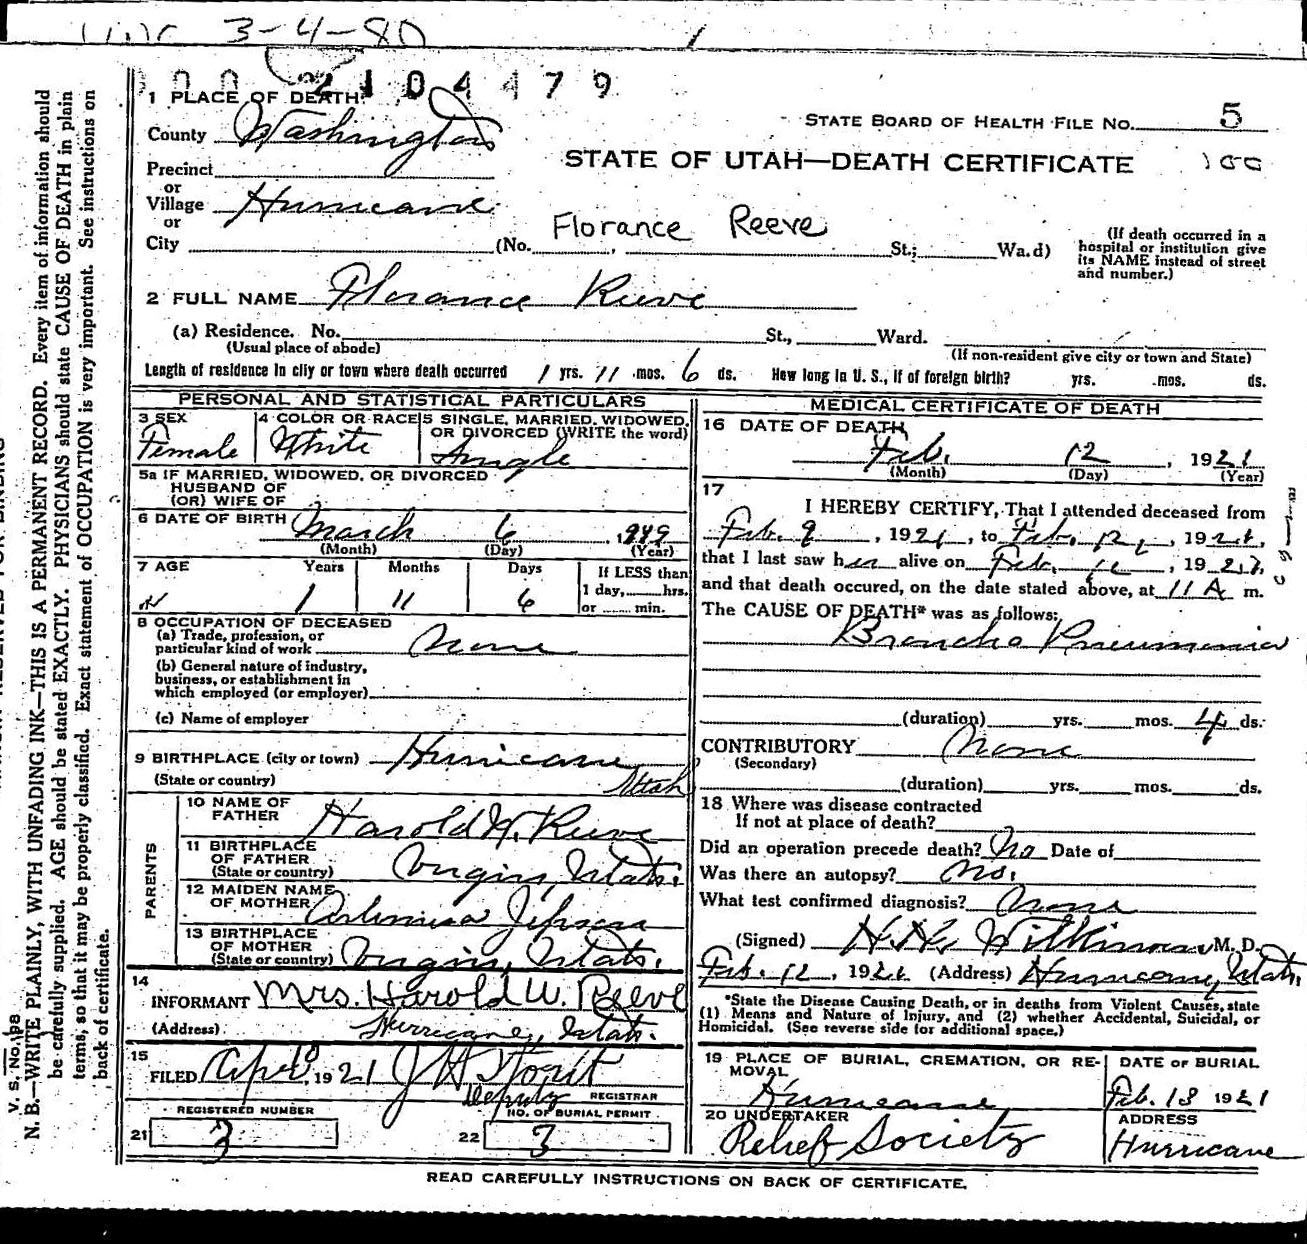 3-4-80
2104479
1 PLACE OF DEATH:
County Washington
STATE BOARD OF HEALTH FILE NO. 5
STATE OF UTAH—DEATH CERTIFICATE 100
Precinct
or
Village Hurricane
or
City (No. Florance Reeve St.; Wa.d)
(If death occurred in a hospital or institution give its NAME instead of street and number.)
2 FULL NAME Florance Reeve
(a) Residence. No. St., Ward.
(Usual place of abode) (If non-resident give city or town and State)
Length of residence in city or town where death occurred 1 yrs. 11 mos. 6 ds. How long in U. S., if of foreign birth? yrs. mos. ds.
PERSONAL AND STATISTICAL PARTICULARS
3 SEX Female
4 COLOR OR RACE White
5 SINGLE, MARRIED, WIDOWED, OR DIVORCED (WRITE the word) Single
5a IF MARRIED, WIDOWED, OR DIVORCED
HUSBAND OF
(OR) WIFE OF
6 DATE OF BIRTH March 6
(Month) (Day) (Year)
7 AGE Years Months Days If LESS than
1 day, hrs.
1 11 6 or min.
8 OCCUPATION OF DECEASED
(a) Trade, profession, or
particular kind of work None
(b) General nature of industry,
business, or establishment in
which employed (or employer)
(c) Name of employer
9 BIRTHPLACE (city or town) Hurricane
(State or country) Utah
PARENTS
10 NAME OF FATHER Harold W. Reeve
11 BIRTHPLACE OF FATHER (State or country) Virgin, Utah.
12 MAIDEN NAME OF MOTHER Artimisia Jepson
13 BIRTHPLACE OF MOTHER (State or country) Virgin, Utah.
14
INFORMANT Mrs. Harold W. Reeve
(Address) Hurricane, Utah.
15
FILED 1921
Deputy REGISTRAR
REGISTERED NUMBER NO. OF BURIAL PERMIT
21 3 22 3
MEDICAL CERTIFICATE OF DEATH
16 DATE OF DEATH
Feb. 12, 1921
(Month) (Day) (Year)
17
I HEREBY CERTIFY, That I attended deceased from
Feb. 9, 1921, to Feb. 12, 1921,
that I last saw her alive on Feb. 12, 1921,
and that death occured, on the date stated above, at 11 A m.
The CAUSE OF DEATH* was as follows:
Broncho Pneumonia
(duration) yrs. mos. 4 ds.
CONTRIBUTORY None
(Secondary)
(duration) yrs. mos. ds.
18 Where was disease contracted
If not at place of death?
Did an operation precede death? No Date of
Was there an autopsy? No.
What test confirmed diagnosis? None
(Signed) Wilkinson M. D.
Feb. 12, 1921 (Address) Hurricane, Utah.
*State the Disease Causing Death, or in deaths from Violent Causes, state
(1) Means and Nature of Injury, and (2) whether Accidental, Suicidal, or
Homicidal. (See reverse side for additional space.)
19 PLACE OF BURIAL, CREMATION, OR RE-
MOVAL
Hurricane
DATE OF BURIAL
Feb. 13 1921
20 UNDERTAKER
Relief Society
ADDRESS
Hurricane
READ CAREFULLY INSTRUCTIONS ON BACK OF CERTIFICATE.
V. S. No. 98
N. B.—WRITE PLAINLY, WITH UNFADING INK—THIS IS A PERMANENT RECORD. Every item of information should
be carefully supplied. AGE should be stated EXACTLY. PHYSICIANS should state CAUSE OF DEATH in plain
terms, so that it may be properly classified. Exact statement of OCCUPATION is very important. See instructions on
back of certificate.